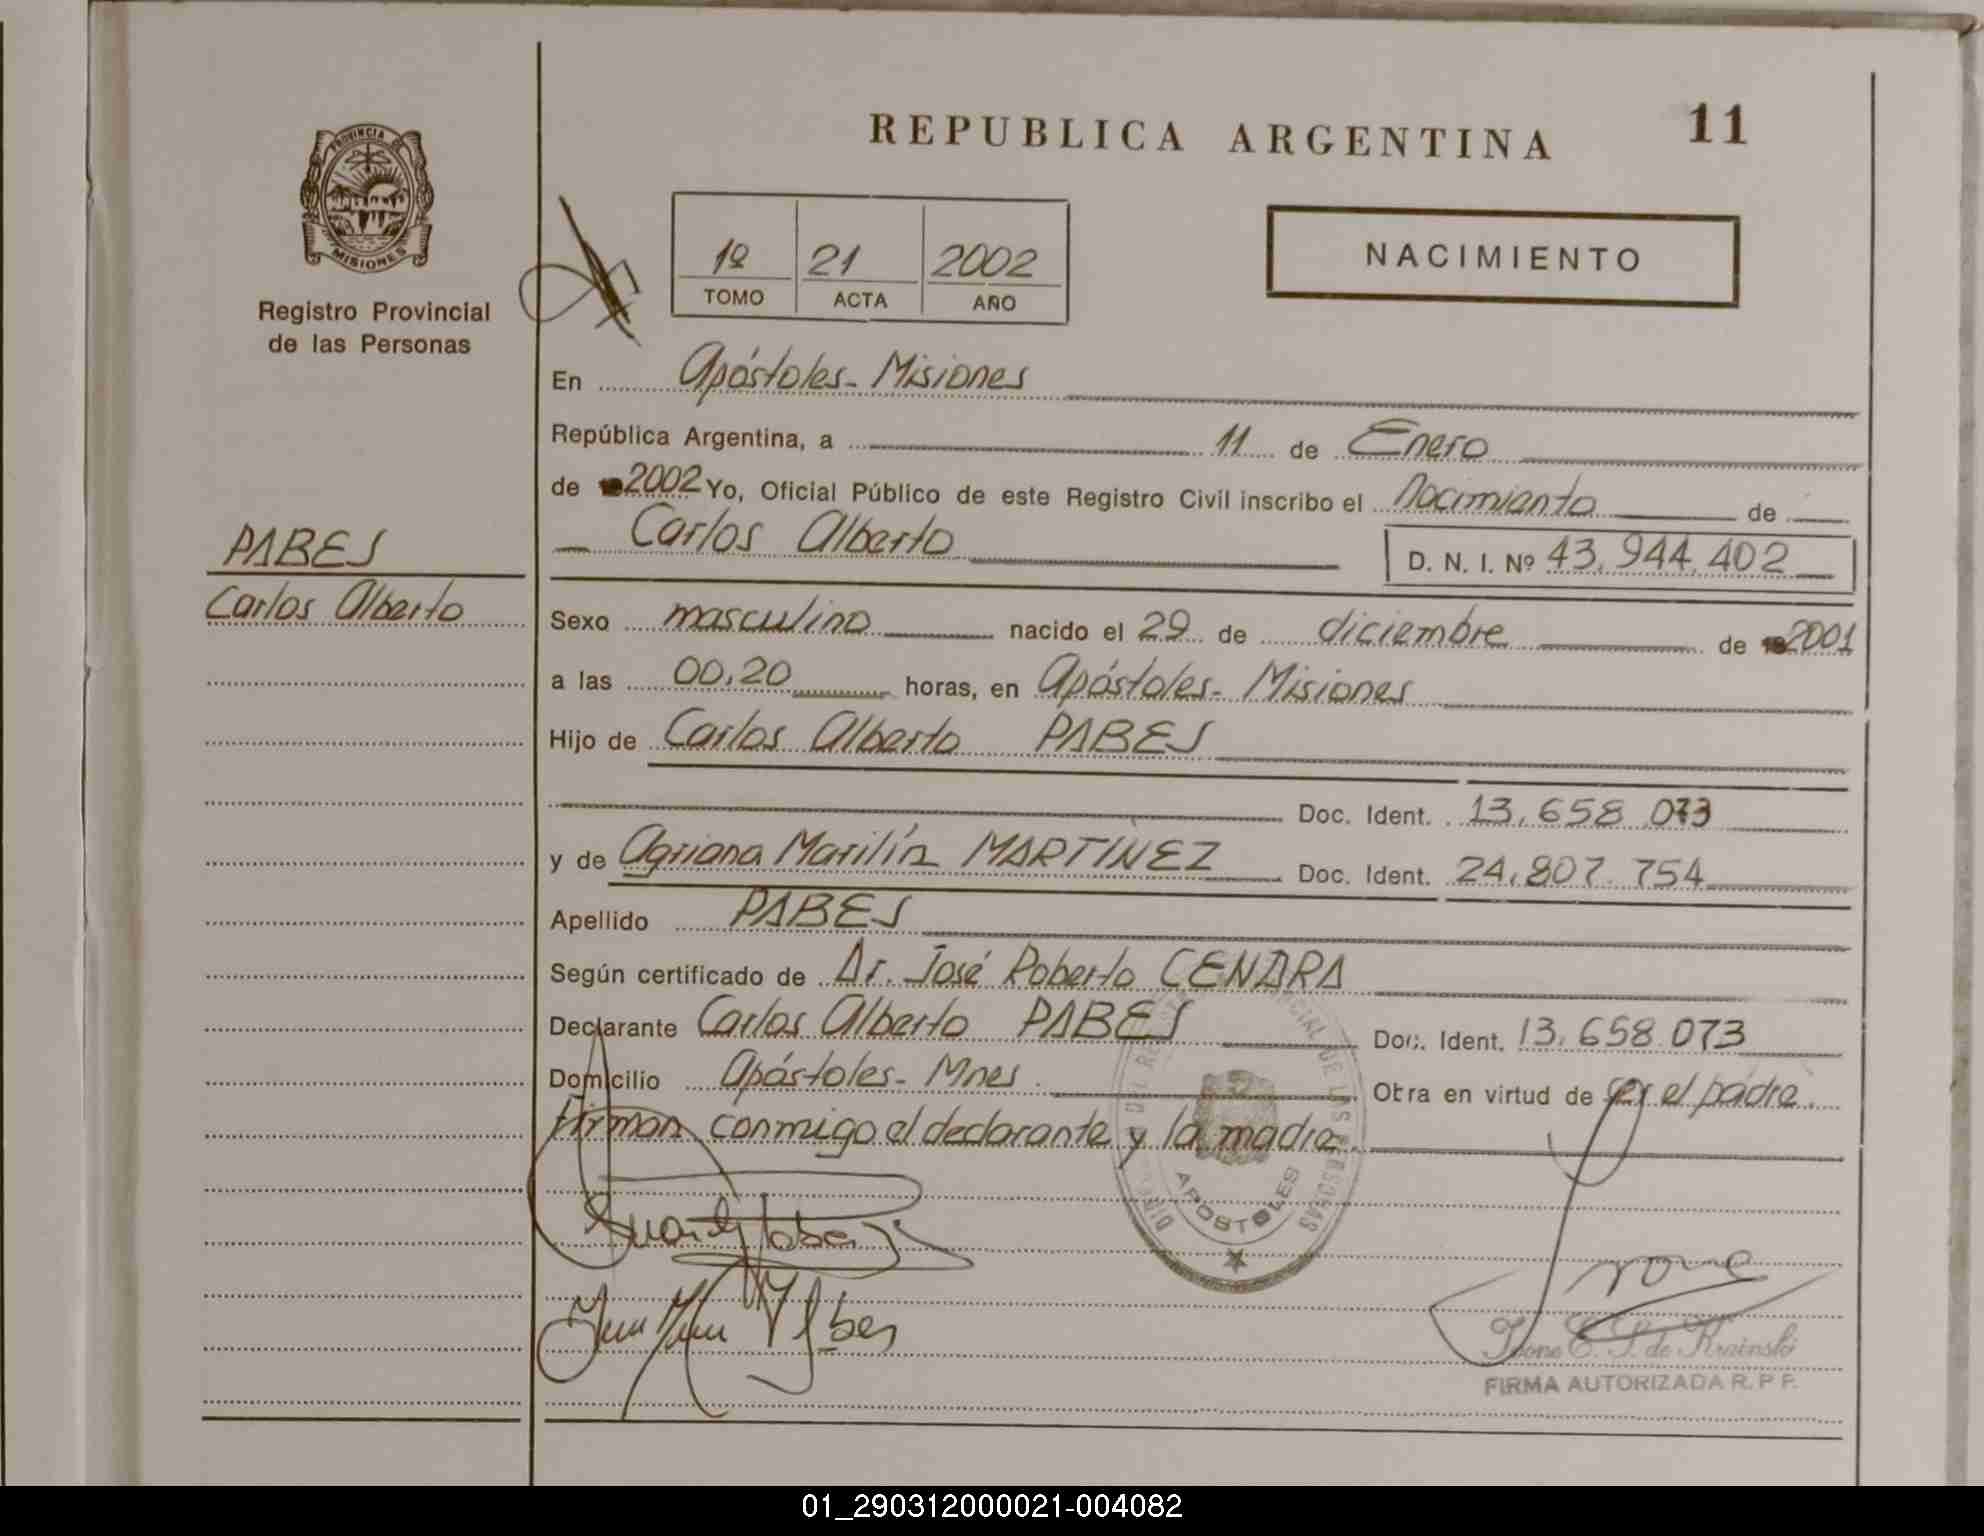 REPUBLICA ARGENTINA
11
PROVINCIA DE
MISIONES
Registro Provincial
de las Personas
1º 21 2002
TOMO ACTA AÑO
NACIMIENTO
En Apóstoles- Misiones
República Argentina, a 11 de Enero
de 2002 Yo, Oficial Público de este Registro Civil inscribo el Nacimiento de
Carlos Alberto D. N. I. Nº 43.944.402
PABES
Carlos Alberto
Sexo masculino nacido el 29 de diciembre de 2001
a las 00,20 horas, en Apóstoles- Misiones
Hijo de Carlos Alberto PABES
Doc. Ident. 13.658.073
y de Agriana Marilín MARTINEZ Doc. Ident. 24.807.754
Apellido PABES
Según certificado de Dr. José Roberto CENDRA
Declarante Carlos Alberto PABES Doc. Ident. 13.658.073
Domicilio Apóstoles- Mnes. Obra en virtud de ser el padre.
Firman conmigo el declarante y la madre.
APOSTOLES
FIRMA AUTORIZADA R. P. P.
01_290312000021-004082